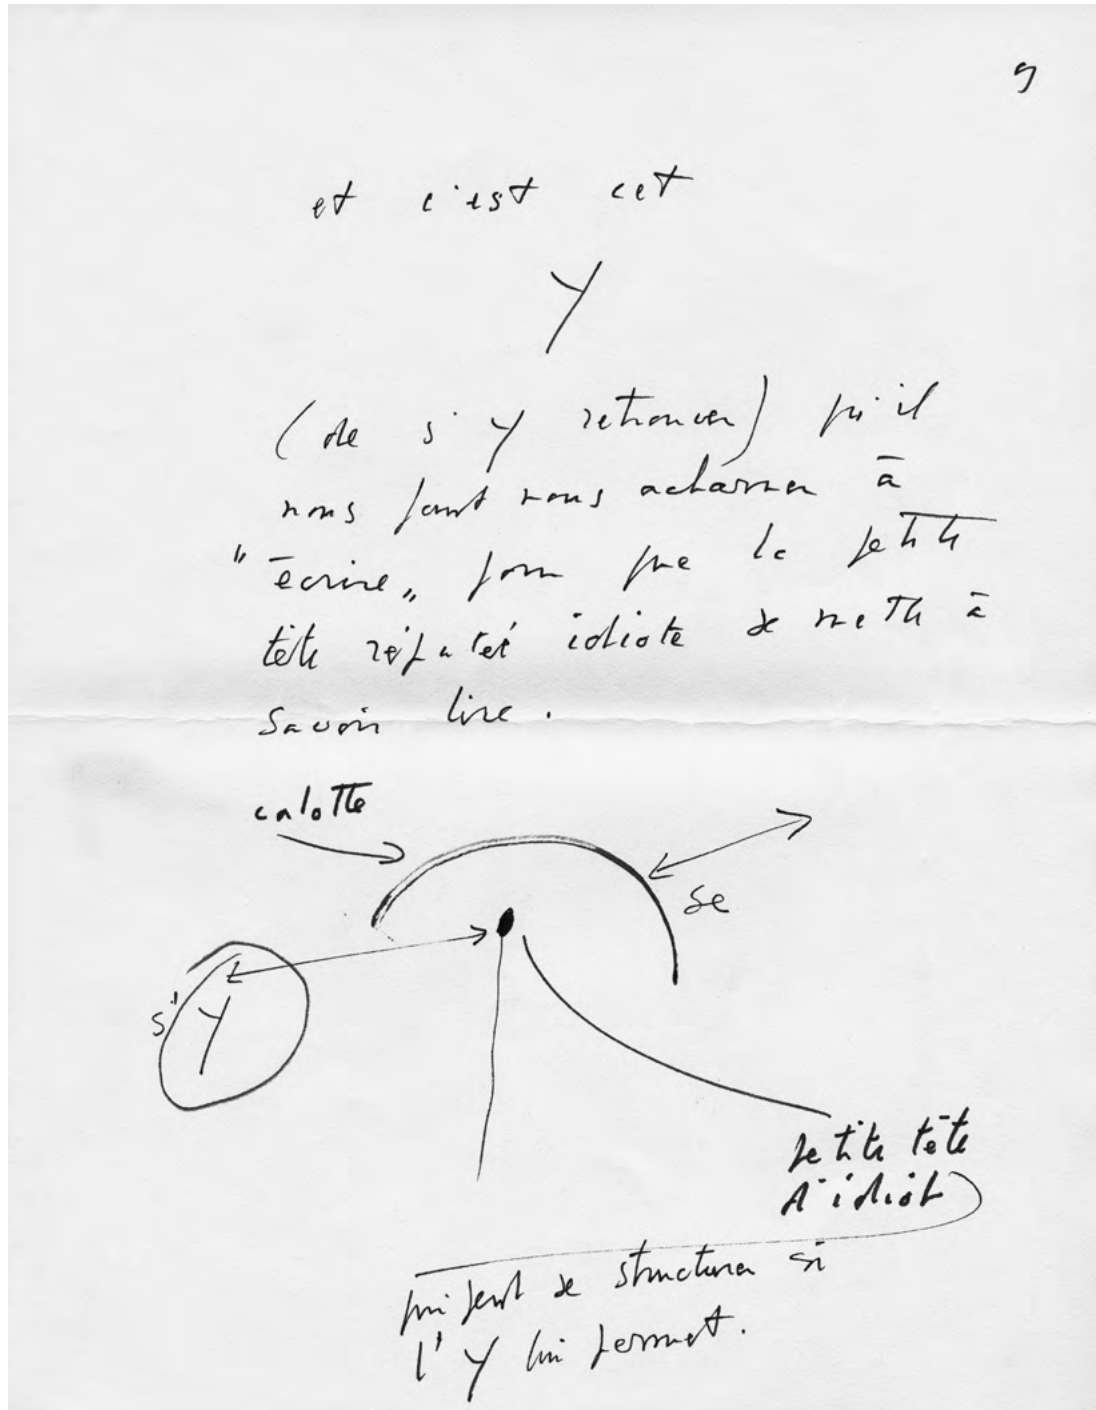 9
et c'est cet
Y
(de s'y retrouver) qu'il
nous faut nous acharner à
"écrire" pour que la petite
tête réputée idiote se mette à
savoir lire.
calotte
se
s'Y
petite tête
d'idiot
qui peut se structurer si
l'Y lui permet.